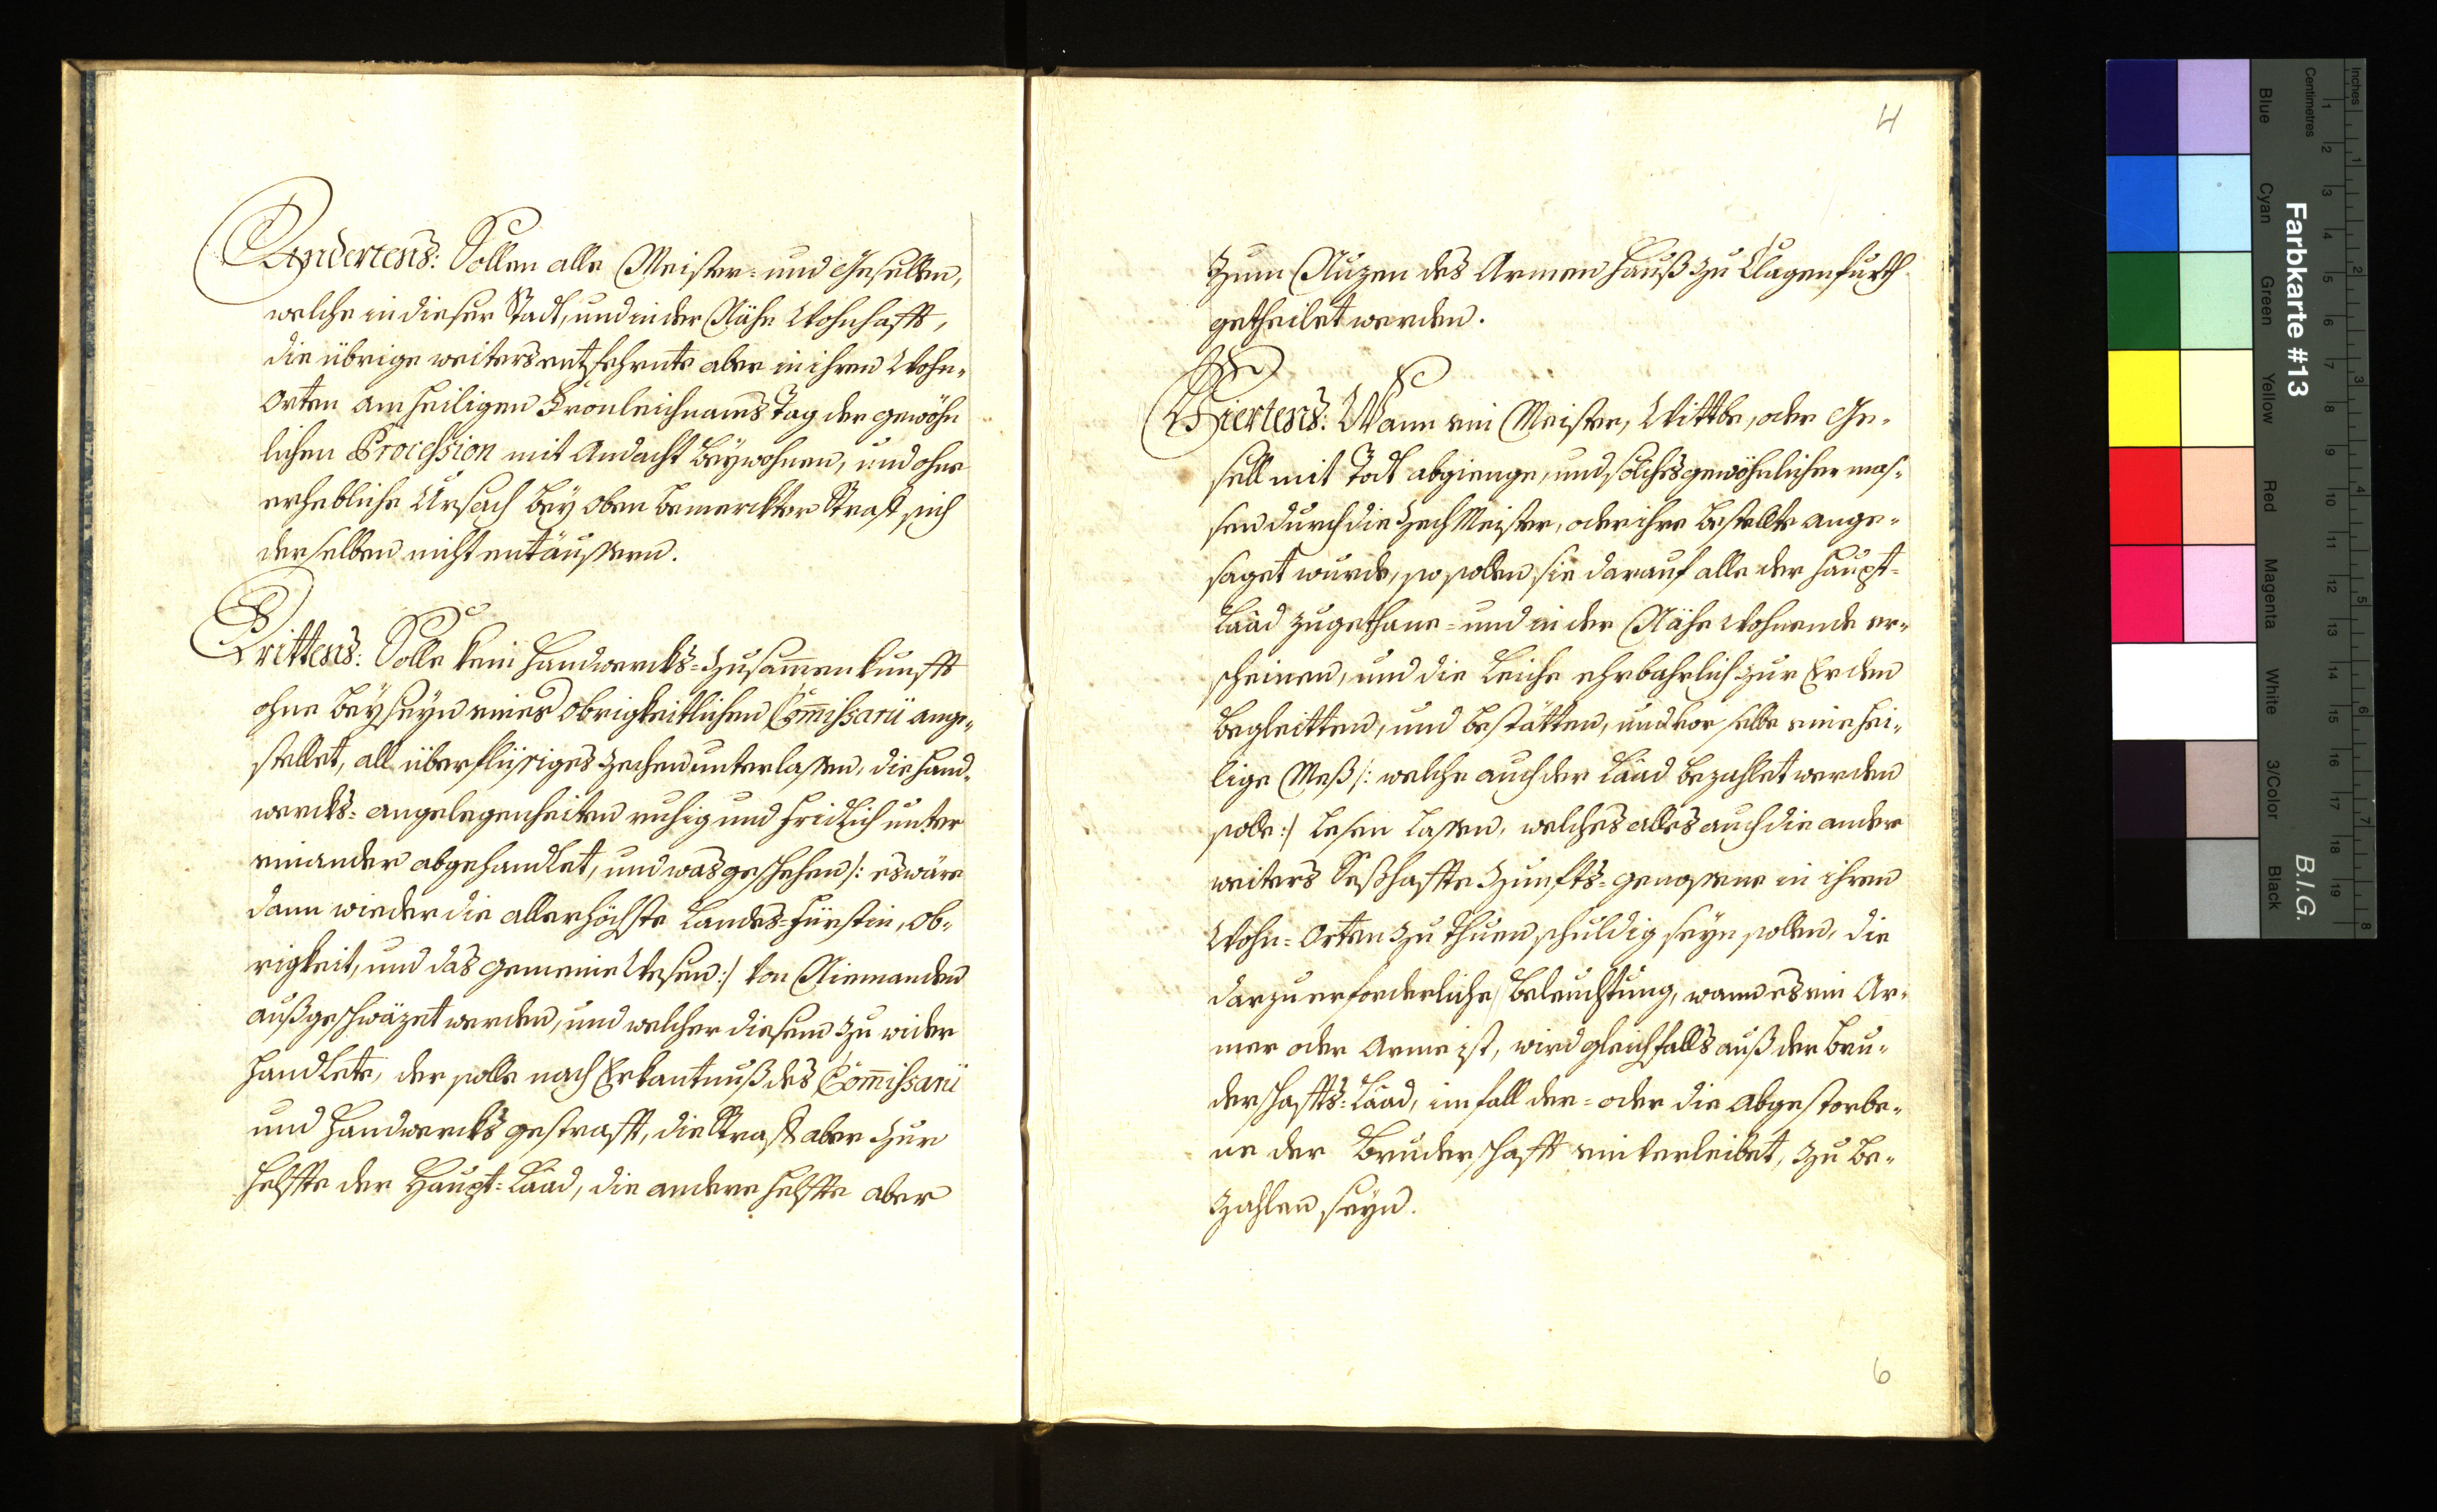 Andertens: Sollen alle Meister- und Gesellen,
welche in dieser Stadt, und in der Nähe Wohnhafft,
die übrige weiters entfehrnte aber in ihren Wohn-
Orten am heiligen Fronleichnams Tag der gewöhn
lichen Procession mit Andacht beywohnen, und ohne
erhebliche Ursach bey oben bemerckter Straff sich
derselben nicht entäussern.
Drittens: Solle kein Handwercks-Zusam̄enkunfft
ohne beyseyn eines Obrigkeitlichen Com̄issarii ange-
stellet, all überflüssiges Zechen unterlassen, die Hand-
wercks-angelegenheiten ruhig und fridlich unter
einander abgehandlet, und was geschehen /: es wäre
dann wieder die allerhöchste Landes-Fürstin, Ob-
rigkeit, und das gemeine Wesen :/ von Niemanden
außgeschwäzet werden, und welcher diesem zu wider
handlete, der solle nach Erkantnuß des Com̄issarii
und Handwercks gestrafft, die Straff aber zur
helffte der Haupt-Laad, die andere helffte aber
4
zum Nuzen des Armen Hauß zu Clagenfurth
getheilet werden.
Viertens: Wann ein Meister, Wittbe, oder Ge-
sell mit Todt abgienge, und solches gewöhnlicher mas-
sen durch die Zech Meister, oder ihre bestellte ange-
saget wurde, so sollen sie darauf alle der Haupt-
Laad zugethane- und in der Nähe Wohnende er-
scheinen, und die Leiche ehrbahrlich zur Erden
begleitten, und bestätten, und vor selbe eine hei-
lige Meß /: welche auch der Laad bezahlet werden
solle :/ lesen lassen, welches alles auch die andere
weiters Seßhaffte Zunffts-genossene in ihren
Wohn-Orten zu thuen schuldig seyn sollen, die
darzu erforderliche beleuchtung, wann es ein Ar-
mer oder Arme ist, wird gleichfalls auß der bru-
derschaffts-Laad, im fall der- oder die abgestorbe-
ne der Bruderschafft einverleibet, zu be-
zahlen seyn.
6
Inches
Centimetres
1 2 3 4 5 6 7 8 9 10 11 12 13 14 15 16 17 18 19
1 2 3 4 5 6 7 8
Farbkarte #13
B.I.G.
Blue
Cyan
Green
Yellow
Red
Magenta
White
3/Color
Black